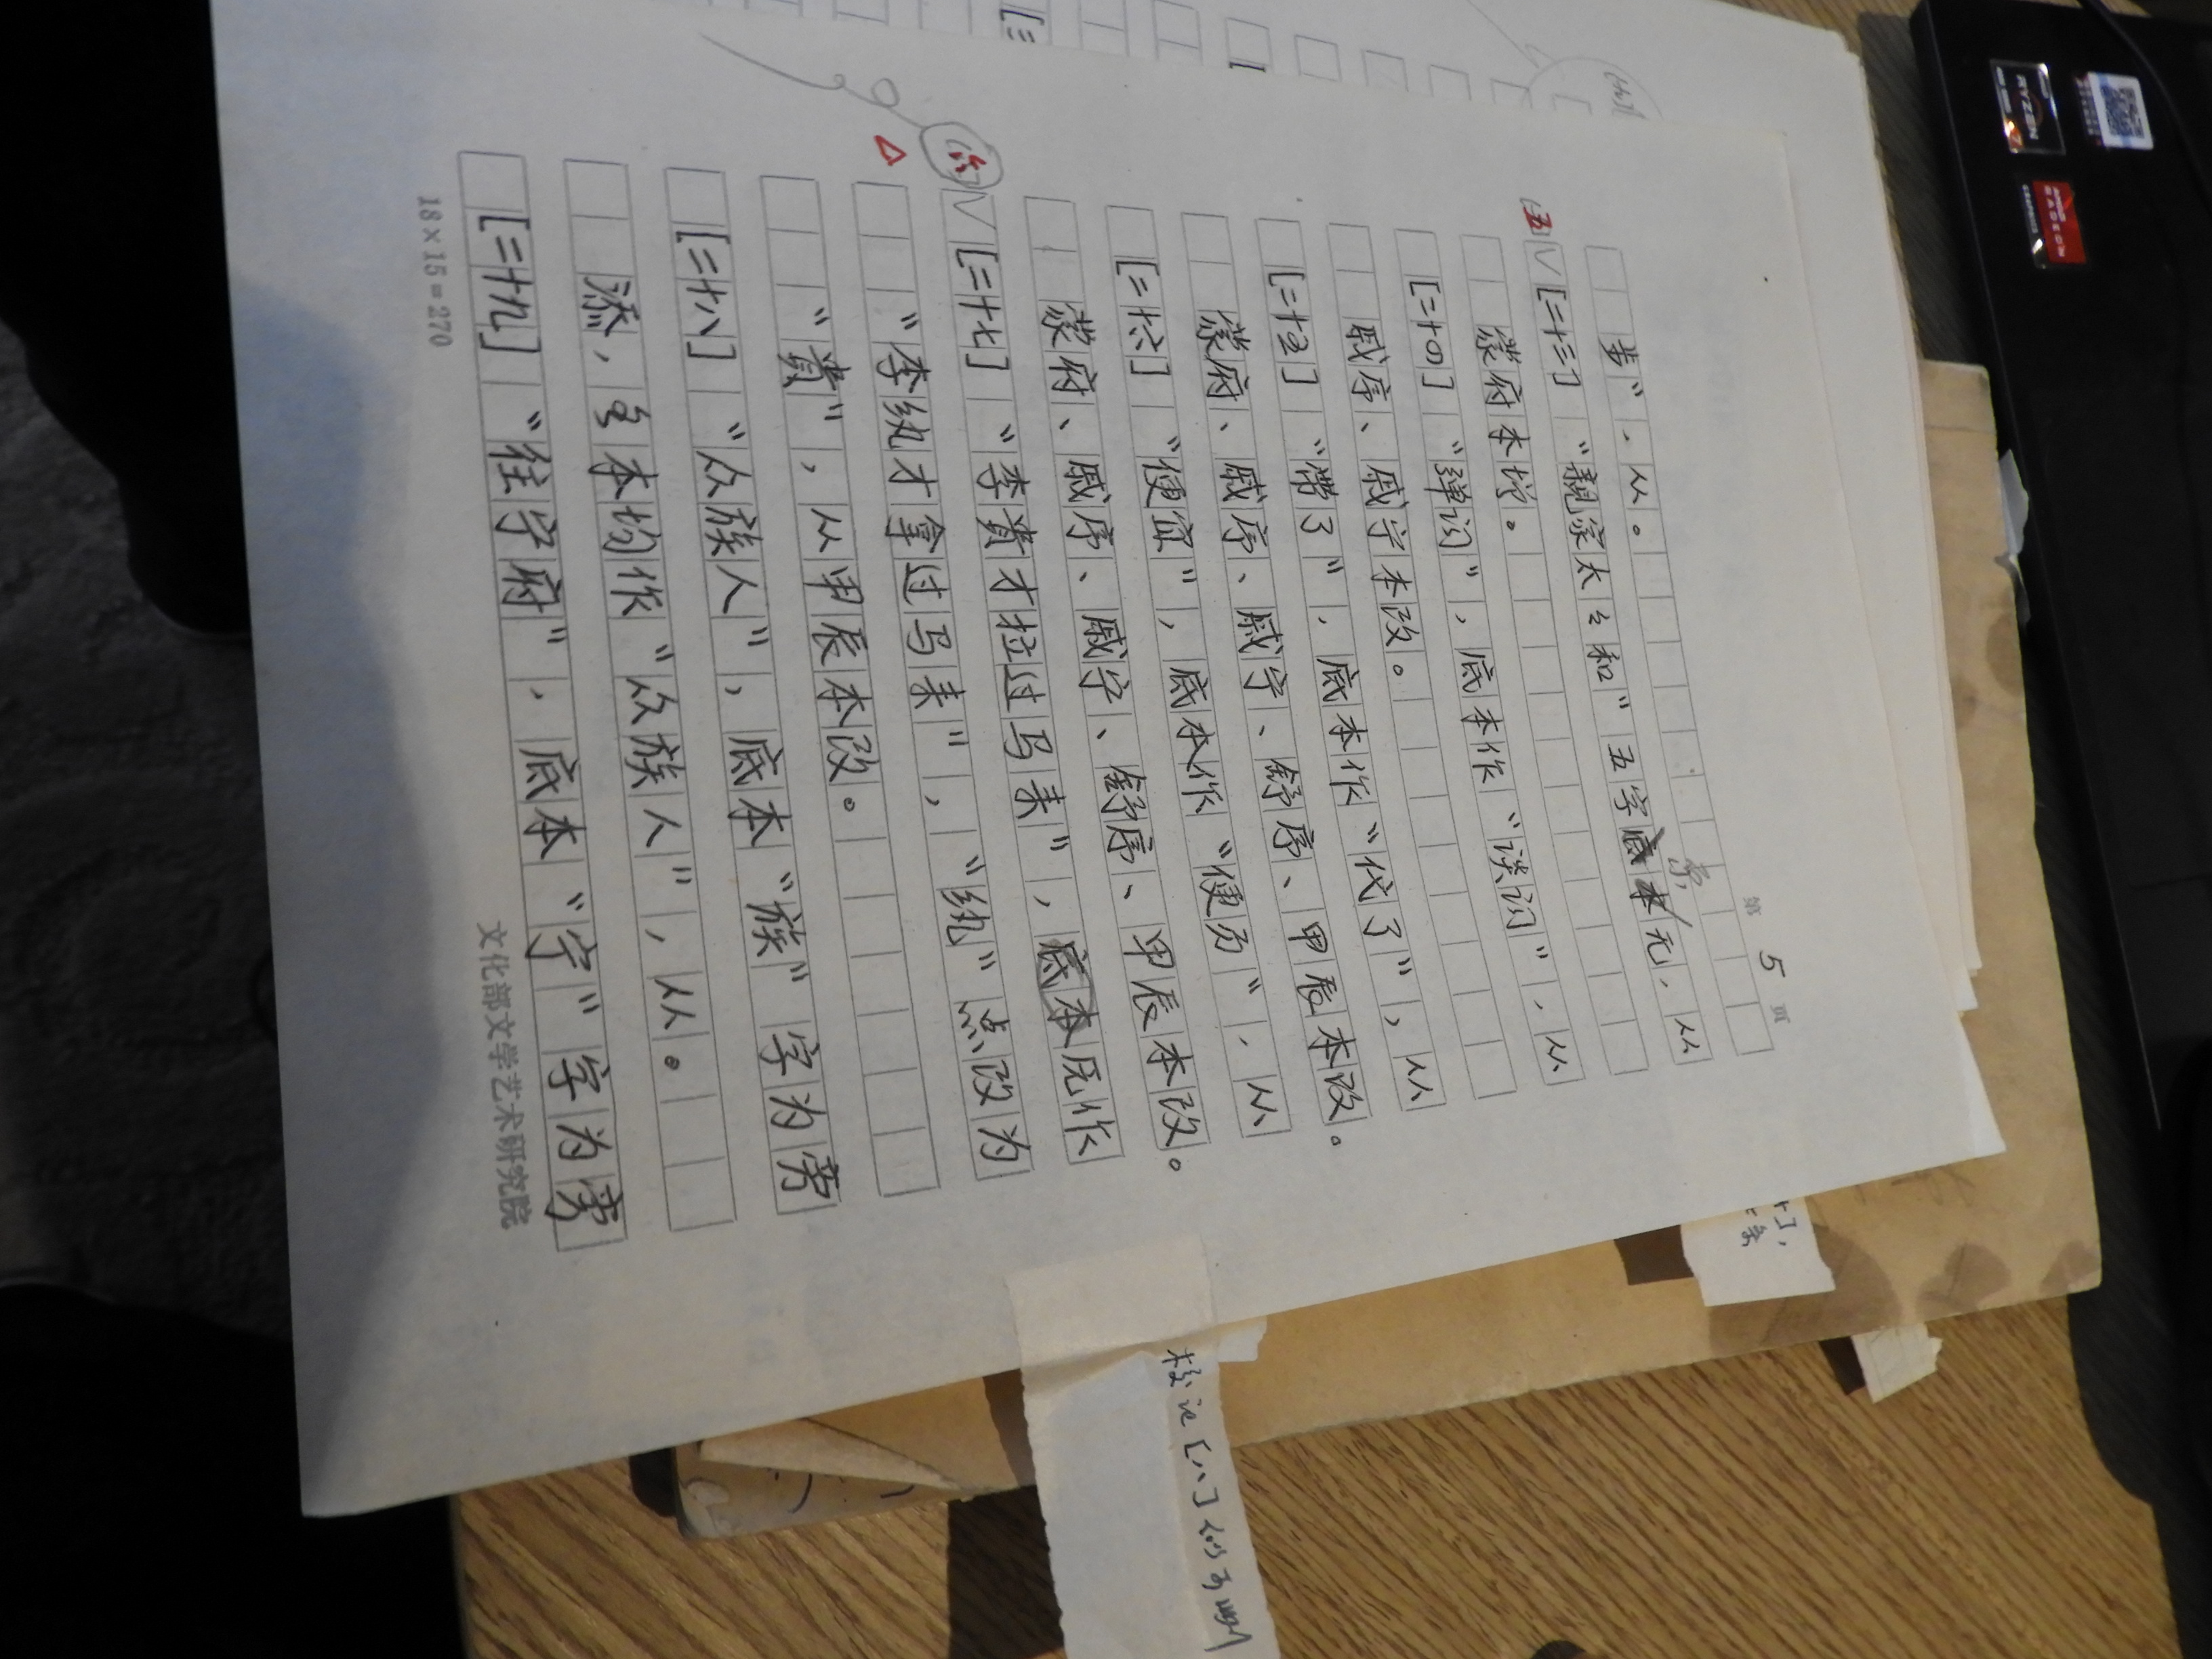 第 5 页
爹”，从。
原
V[二十三] “亲家太々和”五字底本无，从
五
蒙府本增。
[二十四] “弹词”，底本作“谈词”，从
戚序、戚宁本改。
[二十五] “带了”，底本作“代了”，从
蒙府、戚序、戚宁、舒序、甲辰本改。
[二十六] “便宜”，底本作“便易”，从
蒙府、戚序、戚宁、舒序、甲辰本改。
V[二十七] “李贵才拉过马来”，底本原作
六
“李纨才拿过马来”，“纨”点改为
“贵”，从甲辰本改。
[二十八] “众族人”，底本“族”字为旁
添，各本均作“众族人”，从。
[二十九] “往宁府”，底本“宁”字为旁
18×15=270
文化部文学艺术研究院
校记[八]
RYZEN
RADEON